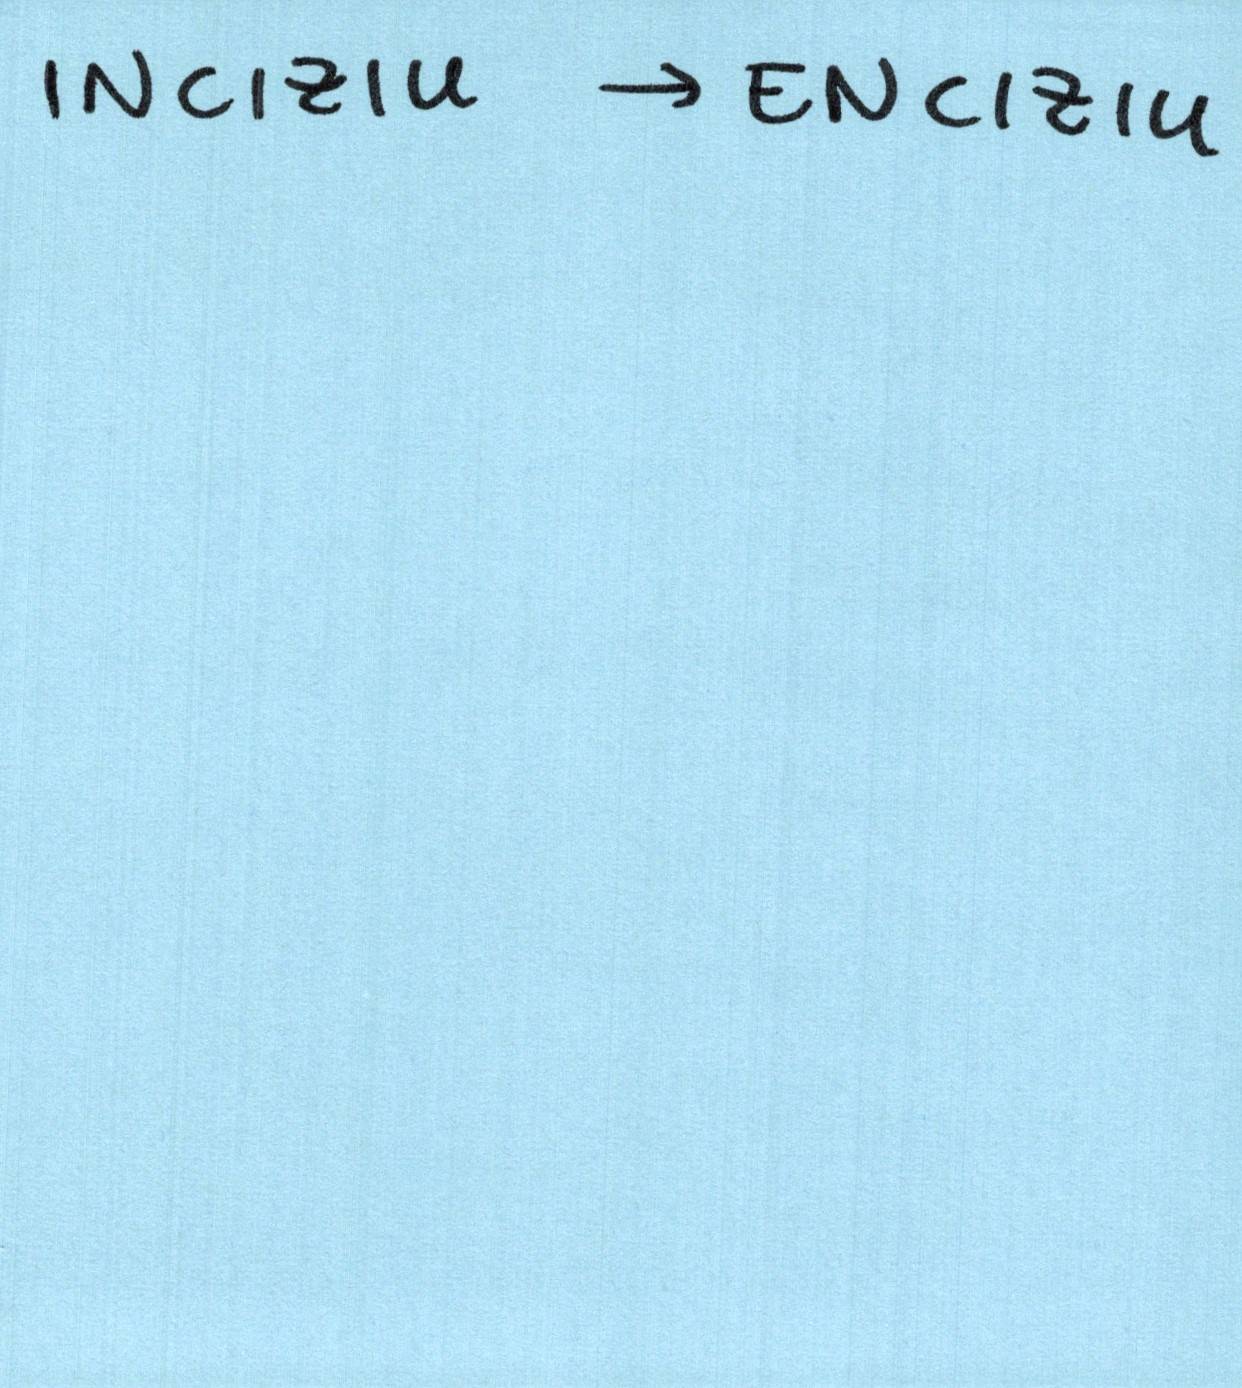 INCIZIU → ENCIZIU